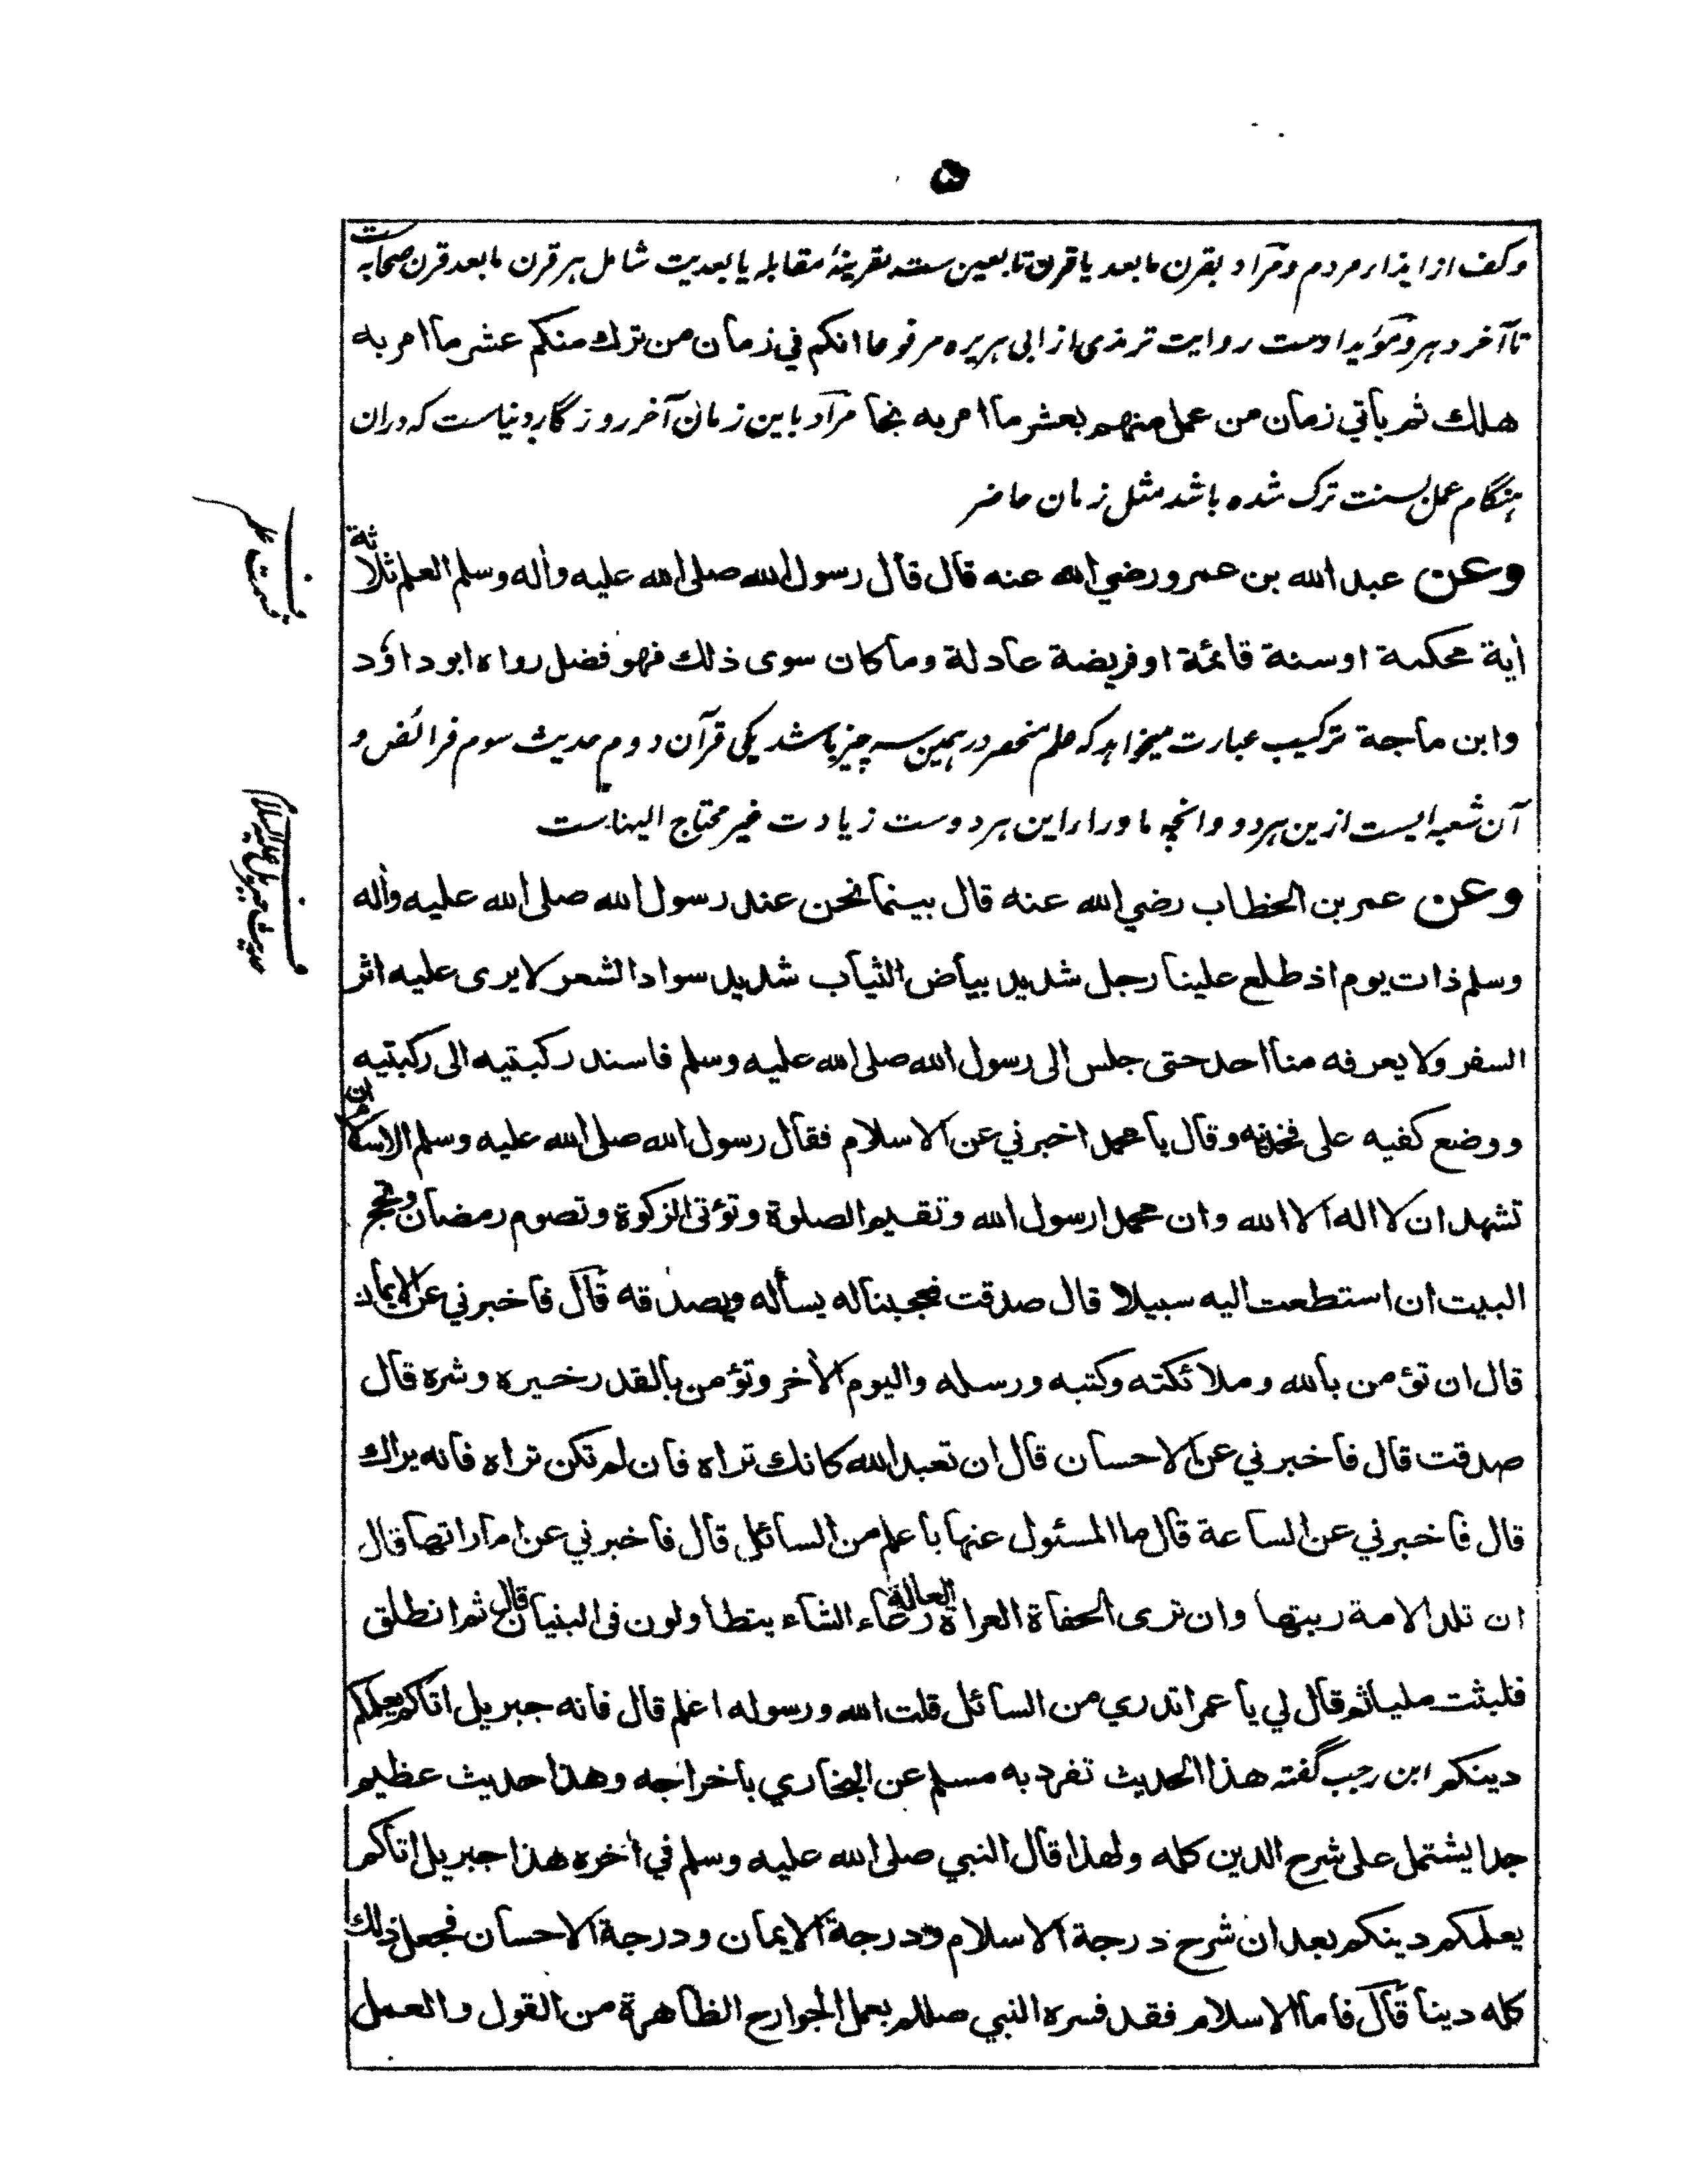 ۵
وکف از ایذاء مردم و مراد بقرن مابعد یا قرن تابعین ست بقرینۀ مقابله یا بعدیت شامل هر قرن مابعد قرن صحابه ست
تا آخر دهر و مؤید اوست روایت ترمذی از ابی هریره مرفوعا انكم في زمان من ترك منكم عشر ما امر به
هلك ثم يأتي زمان من عمل منهم بعشر ما امر به نجا مراد باین زمان آخر روزگار دنیاست که دران
هنگام عمل بسنت ترک شده باشد مثل زمان حاضر
وعن عبد الله بن عمرو رضي الله عنه قال قال رسول الله صلى الله عليه واله وسلم العلم ثلاثة
أية محكمة او سنة قائمة او فريضة عادلة وما كان سوى ذلك فهو فضل رواه ابو داؤد
وابن ماجة ترکیب عبارت میخواهد که علم منحصر در همین سه چیز باشد یکی قرآن دوم حدیث سوم فرائض و
آن شعبه ایست ازین هر دو و انچه ماوراء این هر دوست زیادت غیر محتاج الیهاست
وعن عمر بن الخطاب رضي الله عنه قال بينما نحن عند رسول الله صلى الله عليه واله
وسلم ذات يوم اذ طلع علينا رجل شديد بياض الثياب شديد سواد الشعر لا يرى عليه اثر
السفر ولا يعرفه منا احد حتى جلس الى رسول الله صلى الله عليه وسلم فاسند ركبتيه الى ركبتيه
ووضع كفيه على فخذيه وقال يا محمد اخبرني عن الاسلام فقال رسول الله صلى الله عليه وسلم الاسلام ان
تشهد ان لا اله الا الله وان محمدا رسول الله وتقيم الصلوة وتؤتي الزكوة وتصوم رمضان وتحج
البيت ان استطعت اليه سبيلا قال صدقت فعجبنا له يسأله ويصدقه قال فاخبرني عن الايمان
قال ان تؤمن بالله وملائكته وكتبه ورسله واليوم الأخر وتؤمن بالقدر خيره وشره قال
صدقت قال فاخبرني عن الاحسان قال ان تعبد الله كانك تراه فان لم تكن تراه فانه يراك
قال فاخبرني عن الساعة قال ما المسئول عنها باعلم من السائل قال فاخبرني عن اماراتها قال
ان تلد الامة ربتها وان ترى الحفاة العراة العالة رعاء الشاء يتطاولون في البنيان قال ثم انطلق
فلبثت مليا ثم قال لي يا عمر اتدري من السائل قلت الله ورسوله اعلم قال فانه جبريل اتاكم يعلمكم
دينكم ابن رجب گفته هذا الحديث تفرد به مسلم عن البخاري باخراجه وهذا حديث عظيم
جدا يشتمل على شرح الدين كله ولهذا قال النبي صلى الله عليه وسلم في أخره هذا جبريل اتاكم
يعلمكم دينكم بعد ان شرح درجة الاسلام ودرجة الايمان ودرجة الاحسان فجعل ذلك
كله دينا قال فاما الاسلام فقد فسره النبي صللم بعمل الجوارح الظاهرة من القول والعمل
قسمت علم
حدیث جبریل علیه السلام